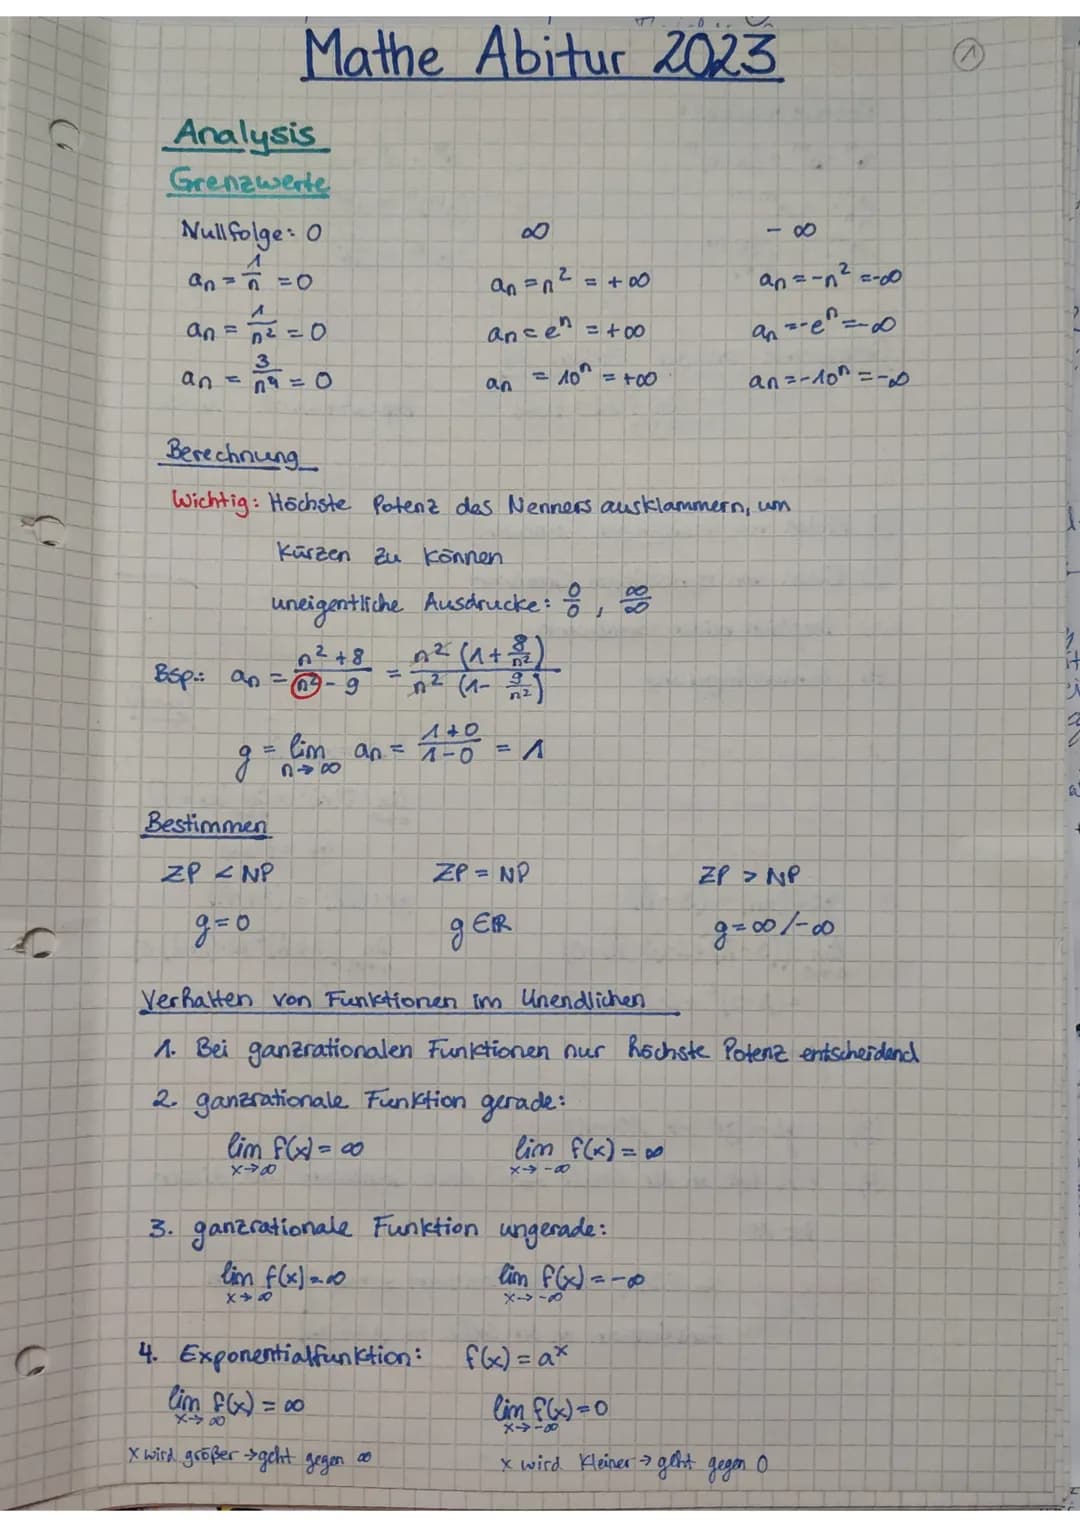 Mathe Abitur 2023
1
Analysis
Grenzwerte
Nullfolge: 0    ∞    -∞
an = 1/n = 0    an = n² = +∞    an = -n² = -∞
an = 1/n² = 0    an = eⁿ = +∞    an = -eⁿ = -∞
an = 3/n⁴ = 0    an = 10ⁿ = +∞    an = -10ⁿ = -∞
Berechnung
Wichtig: Höchste Potenz des Nenners ausklammern, um
kürzen zu können
uneigentliche Ausdrucke: 0/0, ∞/∞
Bsp.: an = (n² + 8)/(n² - 9) = n² (1 + 8/n²) / n² (1 - 9/n²)
g = lim n→∞ an = (1+0)/(1-0) = 1
Bestimmen
ZP < NP    ZP = NP    ZP > NP
g = 0    g ∈ ℝ    g = ∞/-∞
Verhalten von Funktionen im Unendlichen
1. Bei ganzrationalen Funktionen nur höchste Potenz entscheidend
2. ganzrationale Funktion gerade:
lim x→∞ f(x) = ∞    lim x→-∞ f(x) = ∞
3. ganzrationale Funktion ungerade:
lim x→∞ f(x) = ∞    lim x→-∞ f(x) = -∞
4. Exponentialfunktion: f(x) = aˣ
lim x→∞ f(x) = ∞    lim x→-∞ f(x) = 0
x wird größer → geht gegen ∞    x wird kleiner → geht gegen 0